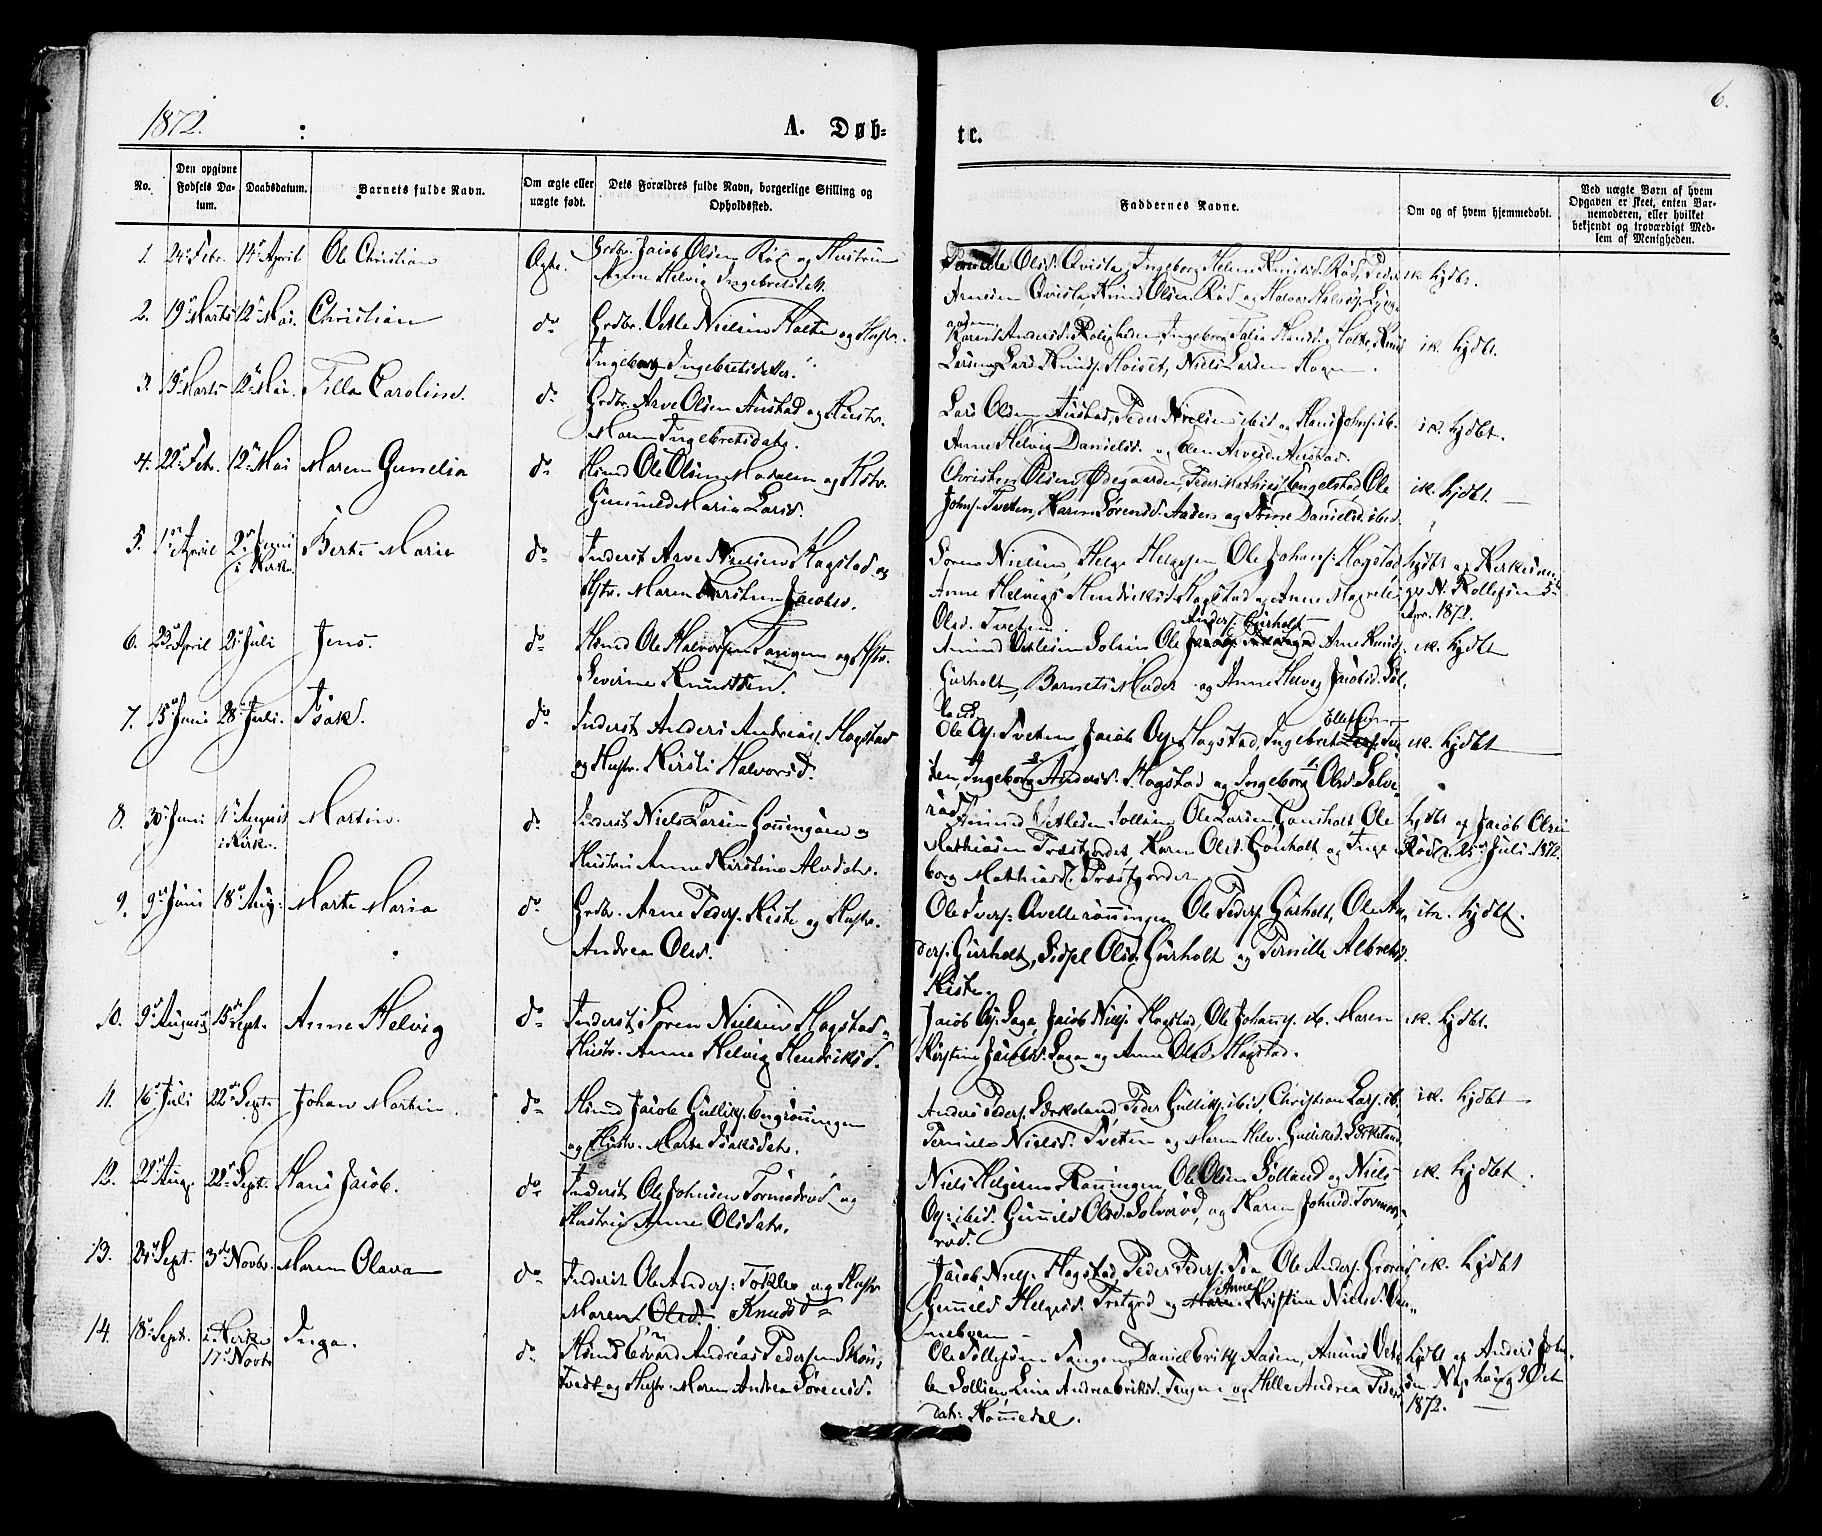 1872.
A. Døb-
te.
6.
No.
Den opgivne Fødsels Da-
tum.
Daabsdatum.
Barnets fulde Navn.
Om ægte eller uægte født.
Dets Forældres fulde Navn, borgerlige Stilling og Opholdssted.
Faddernes Navne.
Om og af hvem hjemmedøbt.
Ved uægte Børn af hvem
Opgaven er skeet, enten Bar-
nemoderen, eller hvilket
bekjendt og troværdigt Med-
lem af Menigheden.
1. 24de Febr. 14de April Ole Christian Ægte. Grdbr. Jacob Olsen Röd og Hustru
Anne Helvig Ingebretsdatt.
Pernille Olsd. Qvisla, Ingeborg Helene Knudsd. Röd, Peder
Arnesen Qvisla, Knud Olsen Röd og Halvor
ik. hjdbt.
2. 19de Marts 12te Mai. Christian do Grdbr. Vetle Nielsen Holte og Hustr.
Ingeborg Ingebretsdatter.
Karen Andersd. Roligheden, Ingeborg Talie Hansd. Holte, Knud
Larsen, Lars Knuds. Höiset, Niels Larsen Hagen.
ik. hjdbt.
3. 19de Marts 12te Mai. Tilla Caroline. do Grdbr. Arve Olsen Austad og Hustr.
Maren Ingebretsdatr.
Lars Olsen Austad, Peder Nielsen ibid og Hans Johns. ib.
Anne Helvig Danielsd. og Olea Arvesd. Austad.
ik. hjdbt.
4. 22de Febr. 12te Mai Maren Gunelia do Hsmd Ole Olsen Modalen og Hstr.
Gunnild Maria Larsd.
Christen Olsen Ødegaarden, Peder Mathias Engelstad, Ole
Johns. Tveten, Karen Sörensd. Aasen og Anne Danielsd. ibid.
ik. hjdbt.
5. 1ste April 2den Juni
i Kirk. Berte Marie do Inderst Arve Nielsen Hagstad og
Hstr. Maren Kirstine Jacobsd.
Sören Nielsen, Helge Helgesen, Ole Johans. Hagstad
Anne Helvig Hendriksd. Hagstad og Anne Margrete
Olsd. Tveten.
hjdbt af Kirkesan-
ger N. Rollefsen 5te
Apr. 1872.
6. 23de April 21de Juli Jens. do Hsmd Ole Halvorsen Tangen og Hstr.
Severine Knudsen.
Anders. Gurholt
Amund Vetlesen Solsin Ole Arne Knuds.
Gurholt, Barnets Moder og Anne Helvig Jacobsd. Söl-
land.
ik. hjdbt
7. 15de Juni 28de Juli. Isak. do Inderst Anders Andreas. Hagstad
og Hustr. Kirsti Halvorsd.
Ellefsen
Ole Ols. Tveten, Jacob Ols. Hagstad, Ingebret
Ingeborg Andersd. Hagstad og Ingeborg Olsd. Solve-
röd
ik. hjdbt
8. 30te Juni 11te August
i Kirk. Martin. do Inderst Niels Larsen og
Hustru Anne Kirstine Alvsdatr.
Amund Vetlesen Sollsin Ole Larsen Gonholt Ole
Mathisen Træsgordet, Karen Olsd. Gonholt og Inge
borg Mathisd. Træsgordet
hjdbt af Jacob Olsen
Röd d. 25de Juli 1872.
9. 9de Juni 18de Aug. Marte Maria do Grdbr. Arne Peders. Kiste og Hustr.
Andrea Olsd.
Ole Ivers. Qvellerönningen Ole Peders. Gurholt, Ole An-
ders. Gurholt, Sidsel Olsd. Gurholt og Pernille Albretsd.
Kiste.
ik. hjdbt.
10. 9de August 15de Sept. Anne Helvig do Inderst Sören Nielsen Hagstad og
Hustr. Anne Helvig Hendriksd.
Jacob Ols. Saga, Jacob Niels. Hagstad, Ole Johans. ib. Maren
Kirstine Jacobsd. Saga og Anne Olsd. Hagstad.
ik. hjdbt.
11. 16de Juli 22de Sept. Johan Martin. do Hsmd Jacob Gulliks. Engrönningen
og Hustr. Marte Isaksdatr.
Anders Peders. Lerkeland, Peder Gulliks. ibid, Christian Lars. ib.
Pernille Nielsd. Tveten og Maren Helv. Gulliksd. Lerkeland.
ik. hjdbt
12. 22de Aug. 22de Sept. Hans Jacob. do Inderst Ole Johnsen Tormodröd og
Hustru Anne Olsdatr.
Niels Helgesen Rönningen Ole Olsen Sölland og Niels
Ols. ibid. Gunnild Olsd. Solveröd, og Karen Johnsd. Tormod-
röd.
ik. hjdbt.
13. 21de Sept. 3die Novbr. Maren Olava do Inderst Ole Anders. Fokle og Hustr.
Maren Olsd. Knudsd.
Jacob Niels. Hagstad, Peder Peders. Ole Anders.
Gunnild Helgesd. og Anne Kirstine Nielsd.
ik. hjdbt
14. 18de Sept. i Kirk
17de Novbr Inga. do Hsmd Edvard Andreas Pedersen Skou-
tvedt og Hustr. Maren Andrea Sörensd.
Ole Tollefsen Tangen, Daniel Eriks. Aasen, Amund Vet-
lesen Sollsin, Lina Andrea Eriksd. Tangen og Helle Andrea Peders
datr. Homedal.
hjdbt af Anders Joh-
9 Oct
1872.